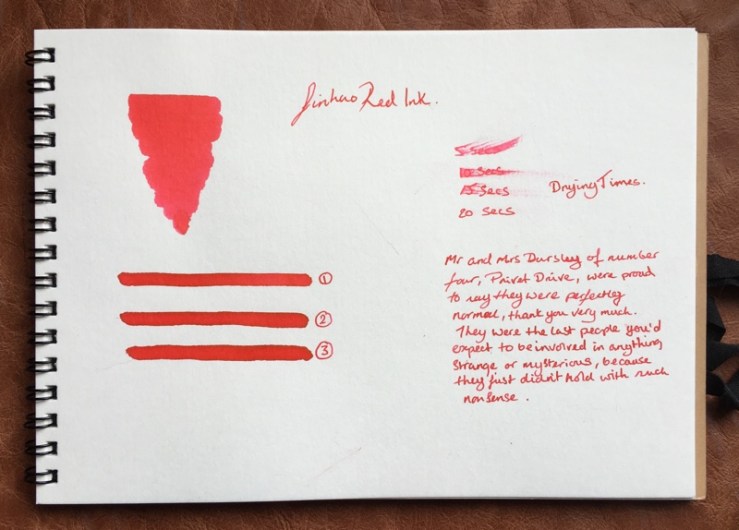 Jinhao Red Ink.
5 secs
10 secs
15 secs
20 secs
Drying Times.
①
②
③
Mr and Mrs Dursley of number
four, Privet Drive, were proud
to say they were perfectly
normal, thank you very much.
They were the last people you'd
expect to be involved in anything
strange or mysterious, because
they just didn't hold with such
nonsense.